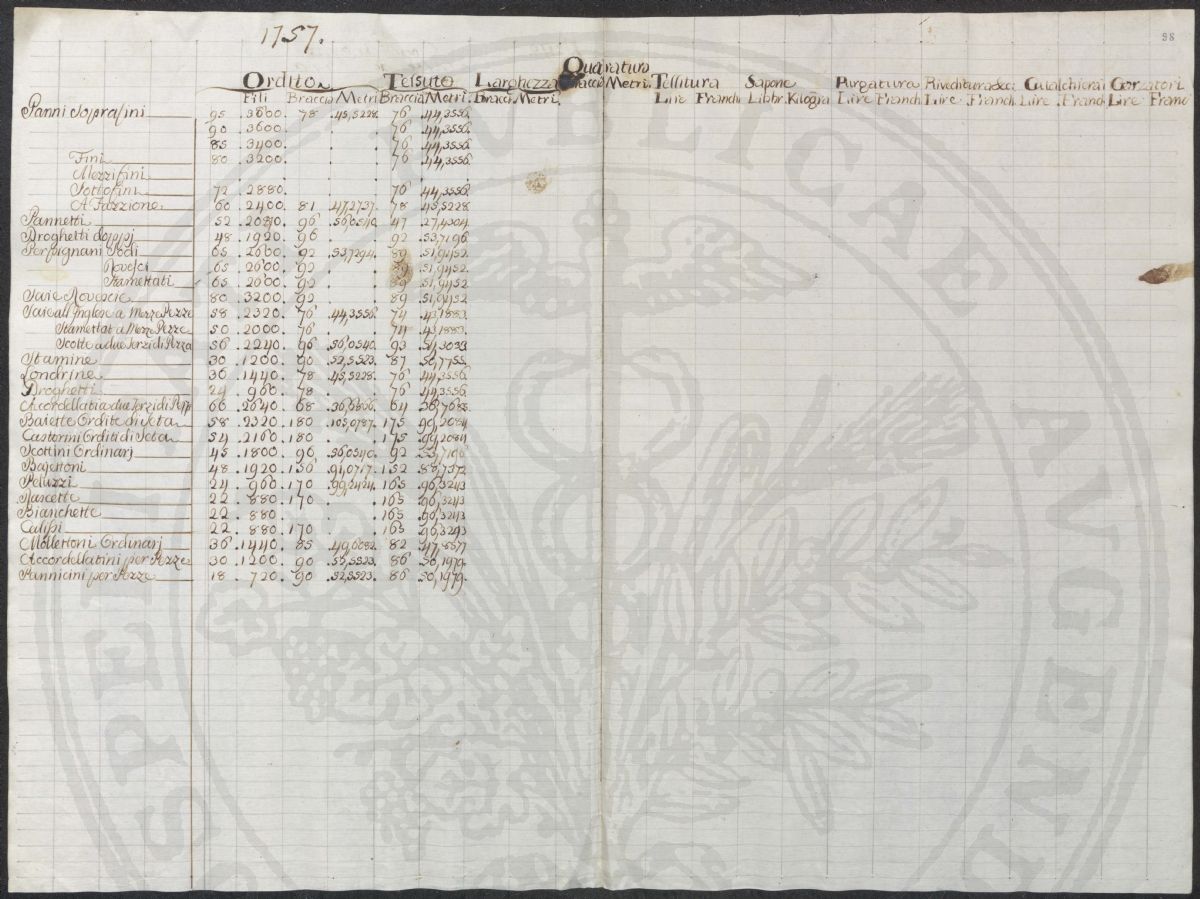 98
1757.
Ordito Tessuto Larghezza Quaratura Tessitura Sapone Purgatura Riveditura Secc. Gualchierai Garzatori
Fili Braccia Metri Braccia Metri. Braccia Metri. Braccia Metri. Lire Franchi Libbr. Kilogra Lire Franch Lire Franch Lire Franch Lire Franc
Panni Soprafini 95 3800. 78 .45,5228. 76 .44,3556.
90 .3600. . . 76 .44,3556.
85 .3400. . . 76 .44,3556.
Fini 80 .3200. . . 76 .44,3556.
Mezzifini . . . . .
Sottofini 72 .2880. . . 76 .44,3556.
A Fazzione 60 .2400. 81 .47,2737. 78 .45,5228.
Pannetti 52 .2080. 96 .56,0540. 47 .27,4304.
Droghetti doppj 48 .1920. 96 . . 92 .53,7196.
Perpignani Sodi 65 .2600. 92 .53,7294. 89 .51,9452.
Rovesci 65 .2600. 92 . . 89 .51,9452.
Stamettati 65 .2600. 92 . . 89 .51,9452
Saie Rovescie 80 .3200. 92 . . 89 .51,9452
Saie all'Inglese a Mezze Pezze 58 .2320. 76 .44,3556. 74 .43,1883.
Stamettat a Mezze Pezze 50 .2000. 76 . . 74 .43,1883.
Scotte a due Terzi di Pezza 56 .2240. 96 .56,0540. 93 .54,3033
Stamine 30 .1200. 90 .52,5523. 87 .50,7755.
Londrine 36 .1440. 78 .45,5228. 76 .44,3556.
Droghetti 24 . 960. 78 . . 76 .44,3556.
Accordellati a due Terzi di Pezz 66 .2640. 68 . 64
Baiette Ordite di Seta 58 .2320. 180 .105,0787. 175 .99,2084
Castorini Orditi di Seta 54 .2160. 180 . . 175 .99,2084
Scottini Ordinarj 45 .1800. 96 .56,0540. 92 .53,7196
Bajettoni 48 .1920. 156 .91,0717. 152 .88,7372
Peluzzi 24 . 960. 170 .99,2424. 165 .96,3243
Rascette 22 . 880. 170 . . 165 .96,3243
Bianchette 22 . 880. . . 165 .96,3243
Calissi 22 . 880. 170 . . 165 .96,3293
Mollettoni Ordinarj 36 .1440. 85 .49,6082. 82 .47,8577
Accordellatini per Pezze 30 .1200. 90 .52,5523. 86 .50,1979.
Pannicini per Pezze 18 . 720. 90 .52,5523. 86 .50,1979.